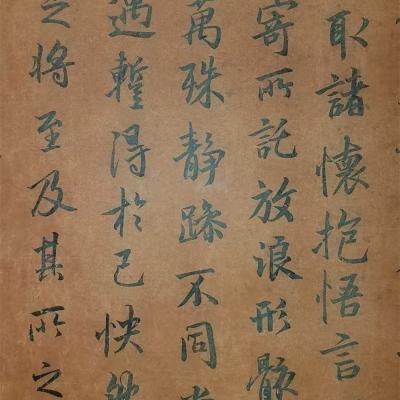 取諸懷抱悟言
寄所託放浪形骸
萬殊靜躁不同當
遇暫得於己怏然
之將至及其所之